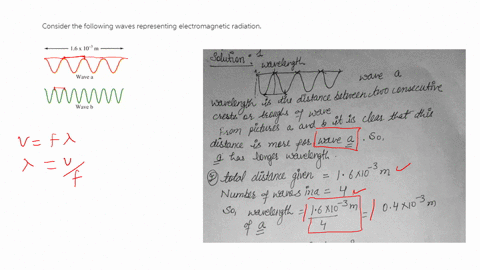 Consider the following waves representing electromagnetic radiation.
1.6 x 10⁻³ m
Wave a
Wave b
v = f λ
λ = v/f
Solution: 1
wavelength
wave a
wavelength is the distance between two consecutive
crests or troughs of wave
From pictures a and b it is clear that this
distance is more for wave a. So,
a has longer wavelength.
② total distance given = 1.6 x10⁻³ m
Number of waves in a = 4
So, wavelength = 1.6 x10⁻³ m / 4 = 0.4 x10⁻³ m
of a